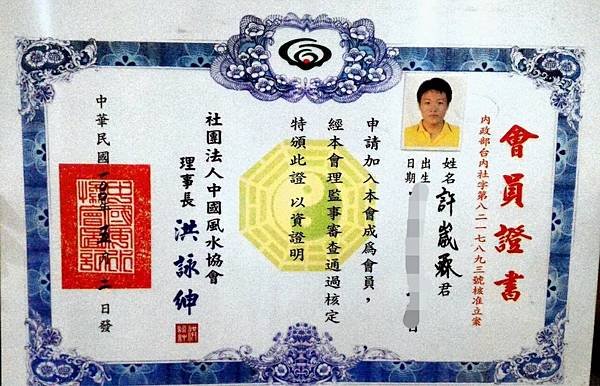 會員證書
內政部台內社字第八二一七八九三號核准立案
姓名 許崴霖 君
出生日期 日
申請加入本會成為會員，
經本會理監事審查通過核定
特頒此證 以資證明
社團法人中國風水協會
理事長 洪詠紳
中華民國一百年 月 二日發